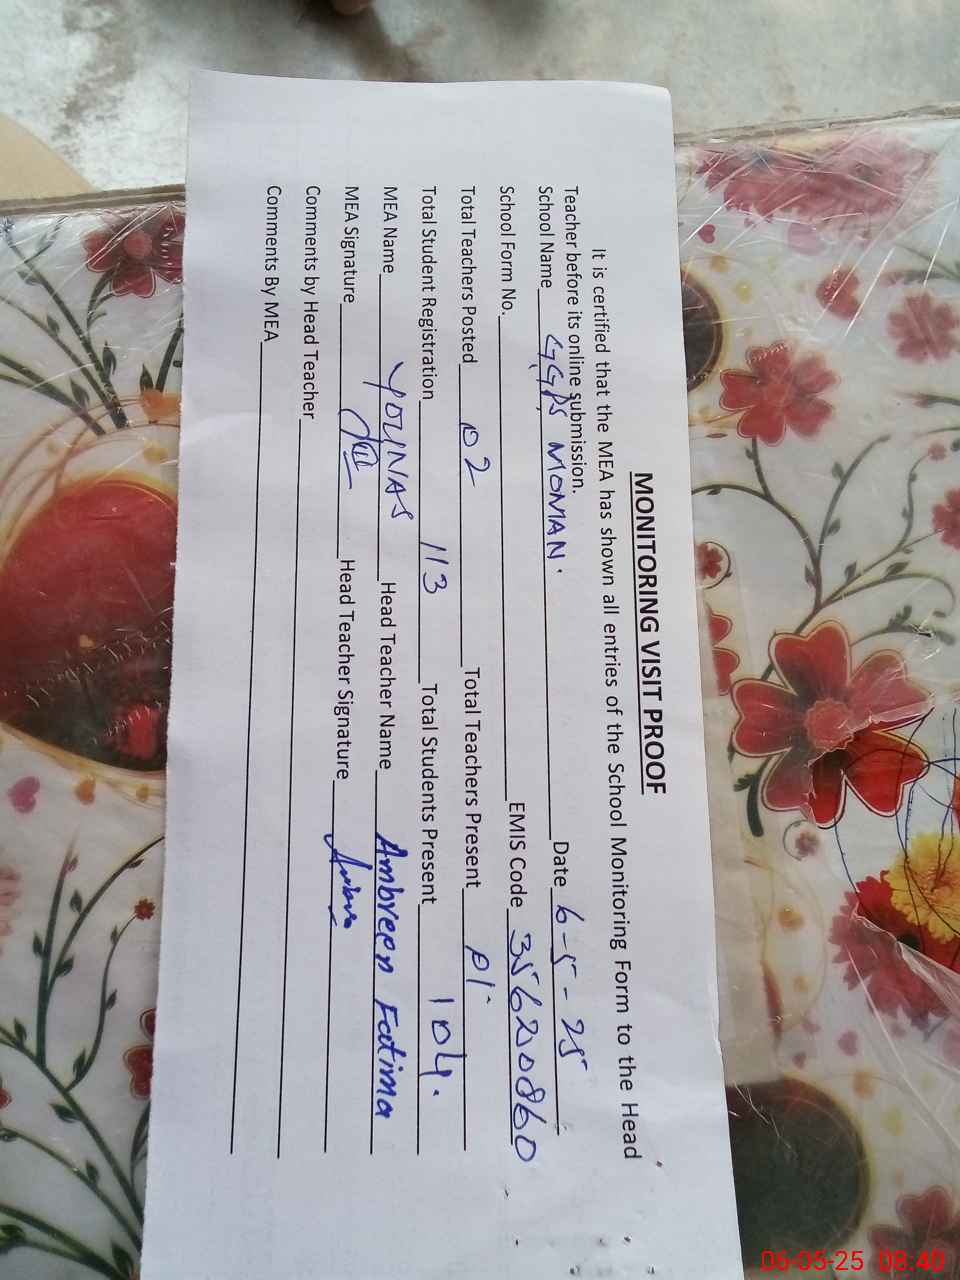 MONITORING VISIT PROOF
It is certified that the MEA has shown all entries of the School Monitoring Form to the Head
Teacher before its online submission.
School Name GGPS MOMAN. Date 6-5-25
School Form No. EMIS Code 35620860
Total Teachers Posted 02 Total Teachers Present 01
Total Student Registration 113 Total Students Present 104.
MEA Name YOUNAS Head Teacher Name Ambreen Fatima
MEA Signature Head Teacher Signature
Comments by Head Teacher
Comments By MEA
06-05-25 08:40